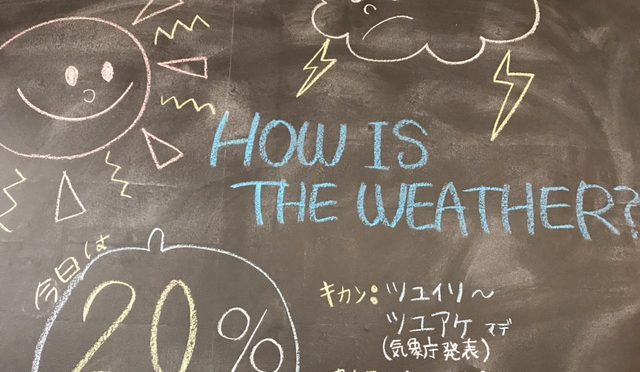 HOW IS
THE WEATHER?
今日は
20%
キカン:ツユイリ～
ツユアケ マデ
(気象庁発表)